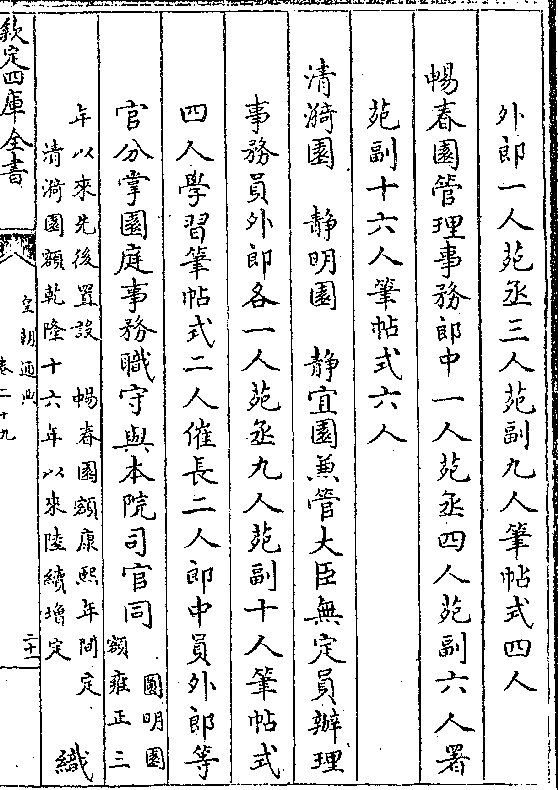 外郎一人苑丞三人苑副九人筆帖式四人
暢春園管理事務郎中一人苑丞四人苑副六人署
苑副十六人筆帖式六人
清漪園　靜明園　靜宜園兼管大臣無定員辦理
事務員外郎各一人苑丞九人苑副十人筆帖式
四人學習筆帖式二人催長二人郎中員外郎等
官分掌園庭事務職守與本院司官同
圓明園
額雍正三
年以來先後置設　暢春園額康熙年間定
清漪園額乾隆十六年以來陸續增定
織
欽定四庫全書
皇朝通典
卷二十九
二十一